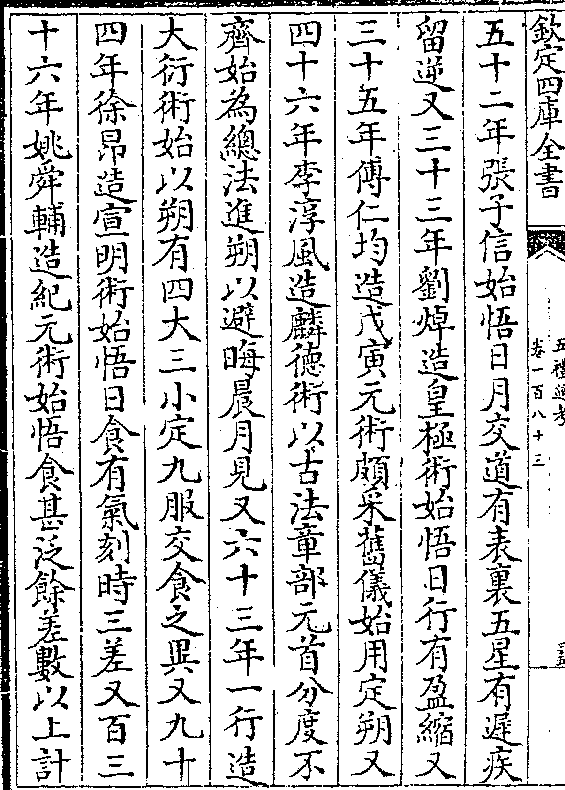 欽定四庫全書
五禮通考
卷一百八十三
五十二年張子信始悟日月交道有表裏五星有遲疾
留逆又三十三年劉焯造皇極術始悟日行有盈縮又
三十五年傅仁均造戊寅元術頗采舊儀始用定朔又
四十六年李淳風造麟德術以古法章蔀元首分度不
齊始為總法進朔以避晦晨月見又六十三年一行造
大衍術始以朔有四大三小定九服交食之異又九十
四年徐昂造宣明術始悟日食有氣刻時三差又百三
十六年姚舜輔造紀元術始悟食甚泛餘差數以上計